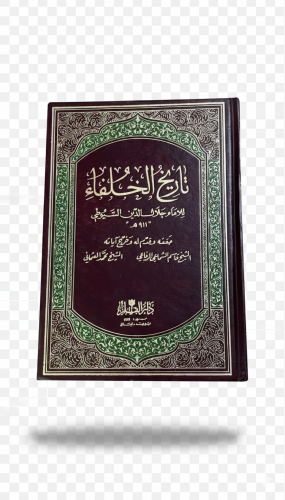 تاريخ الخلفاء
للإمام جلال الدين السيوطي
"٩١١ هـ"
حققه وقدم له وخرج آياته
الشيخ قاسم الشماعي الرفاعي الشيخ محمد العثماني
دار القلم